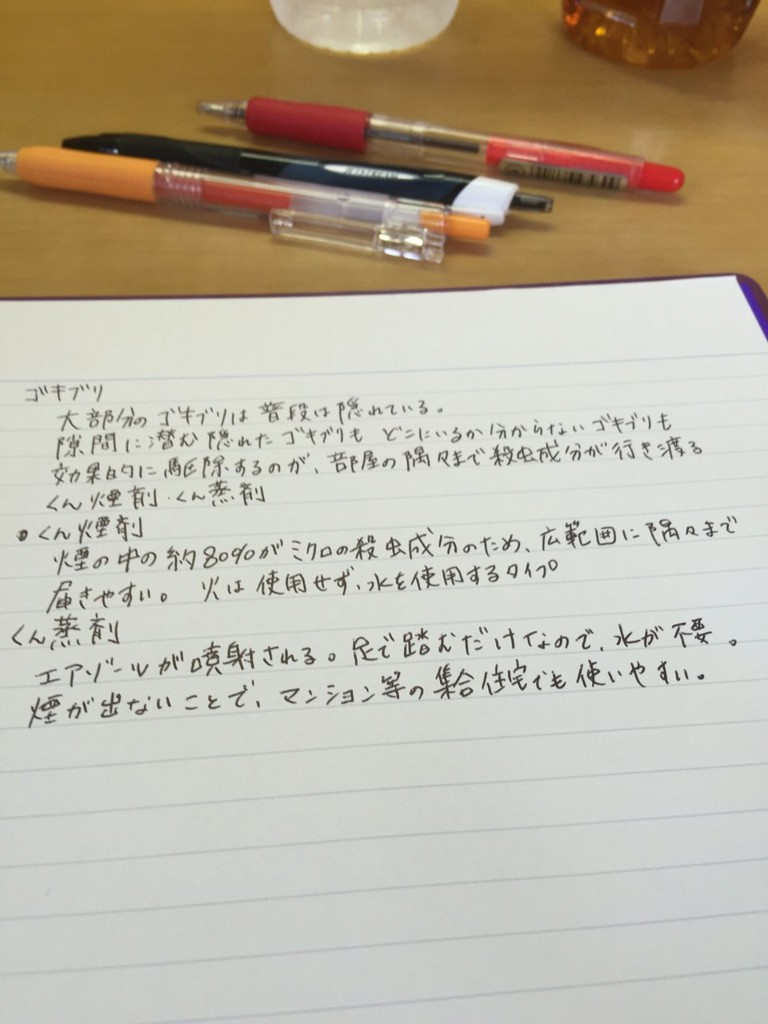 ゴキブリ
大部分のゴキブリは普段は隠れている。
隙間に潜む隠れたゴキブリも どこにいるか分からないゴキブリも
効果的に駆除するのが、部屋の隅々まで殺虫成分が行き渡る
くん煙剤・くん蒸剤
・くん煙剤
煙の中の約80%がミクロの殺虫成分のため、広範囲に隅々まで
届きやすい。 火は使用せず、水を使用するタイプ
くん蒸剤
エアゾールが噴射される。足で踏むだけなので、水が不要。
煙が出ないことで、マンション等の集合住宅でも使いやすい。